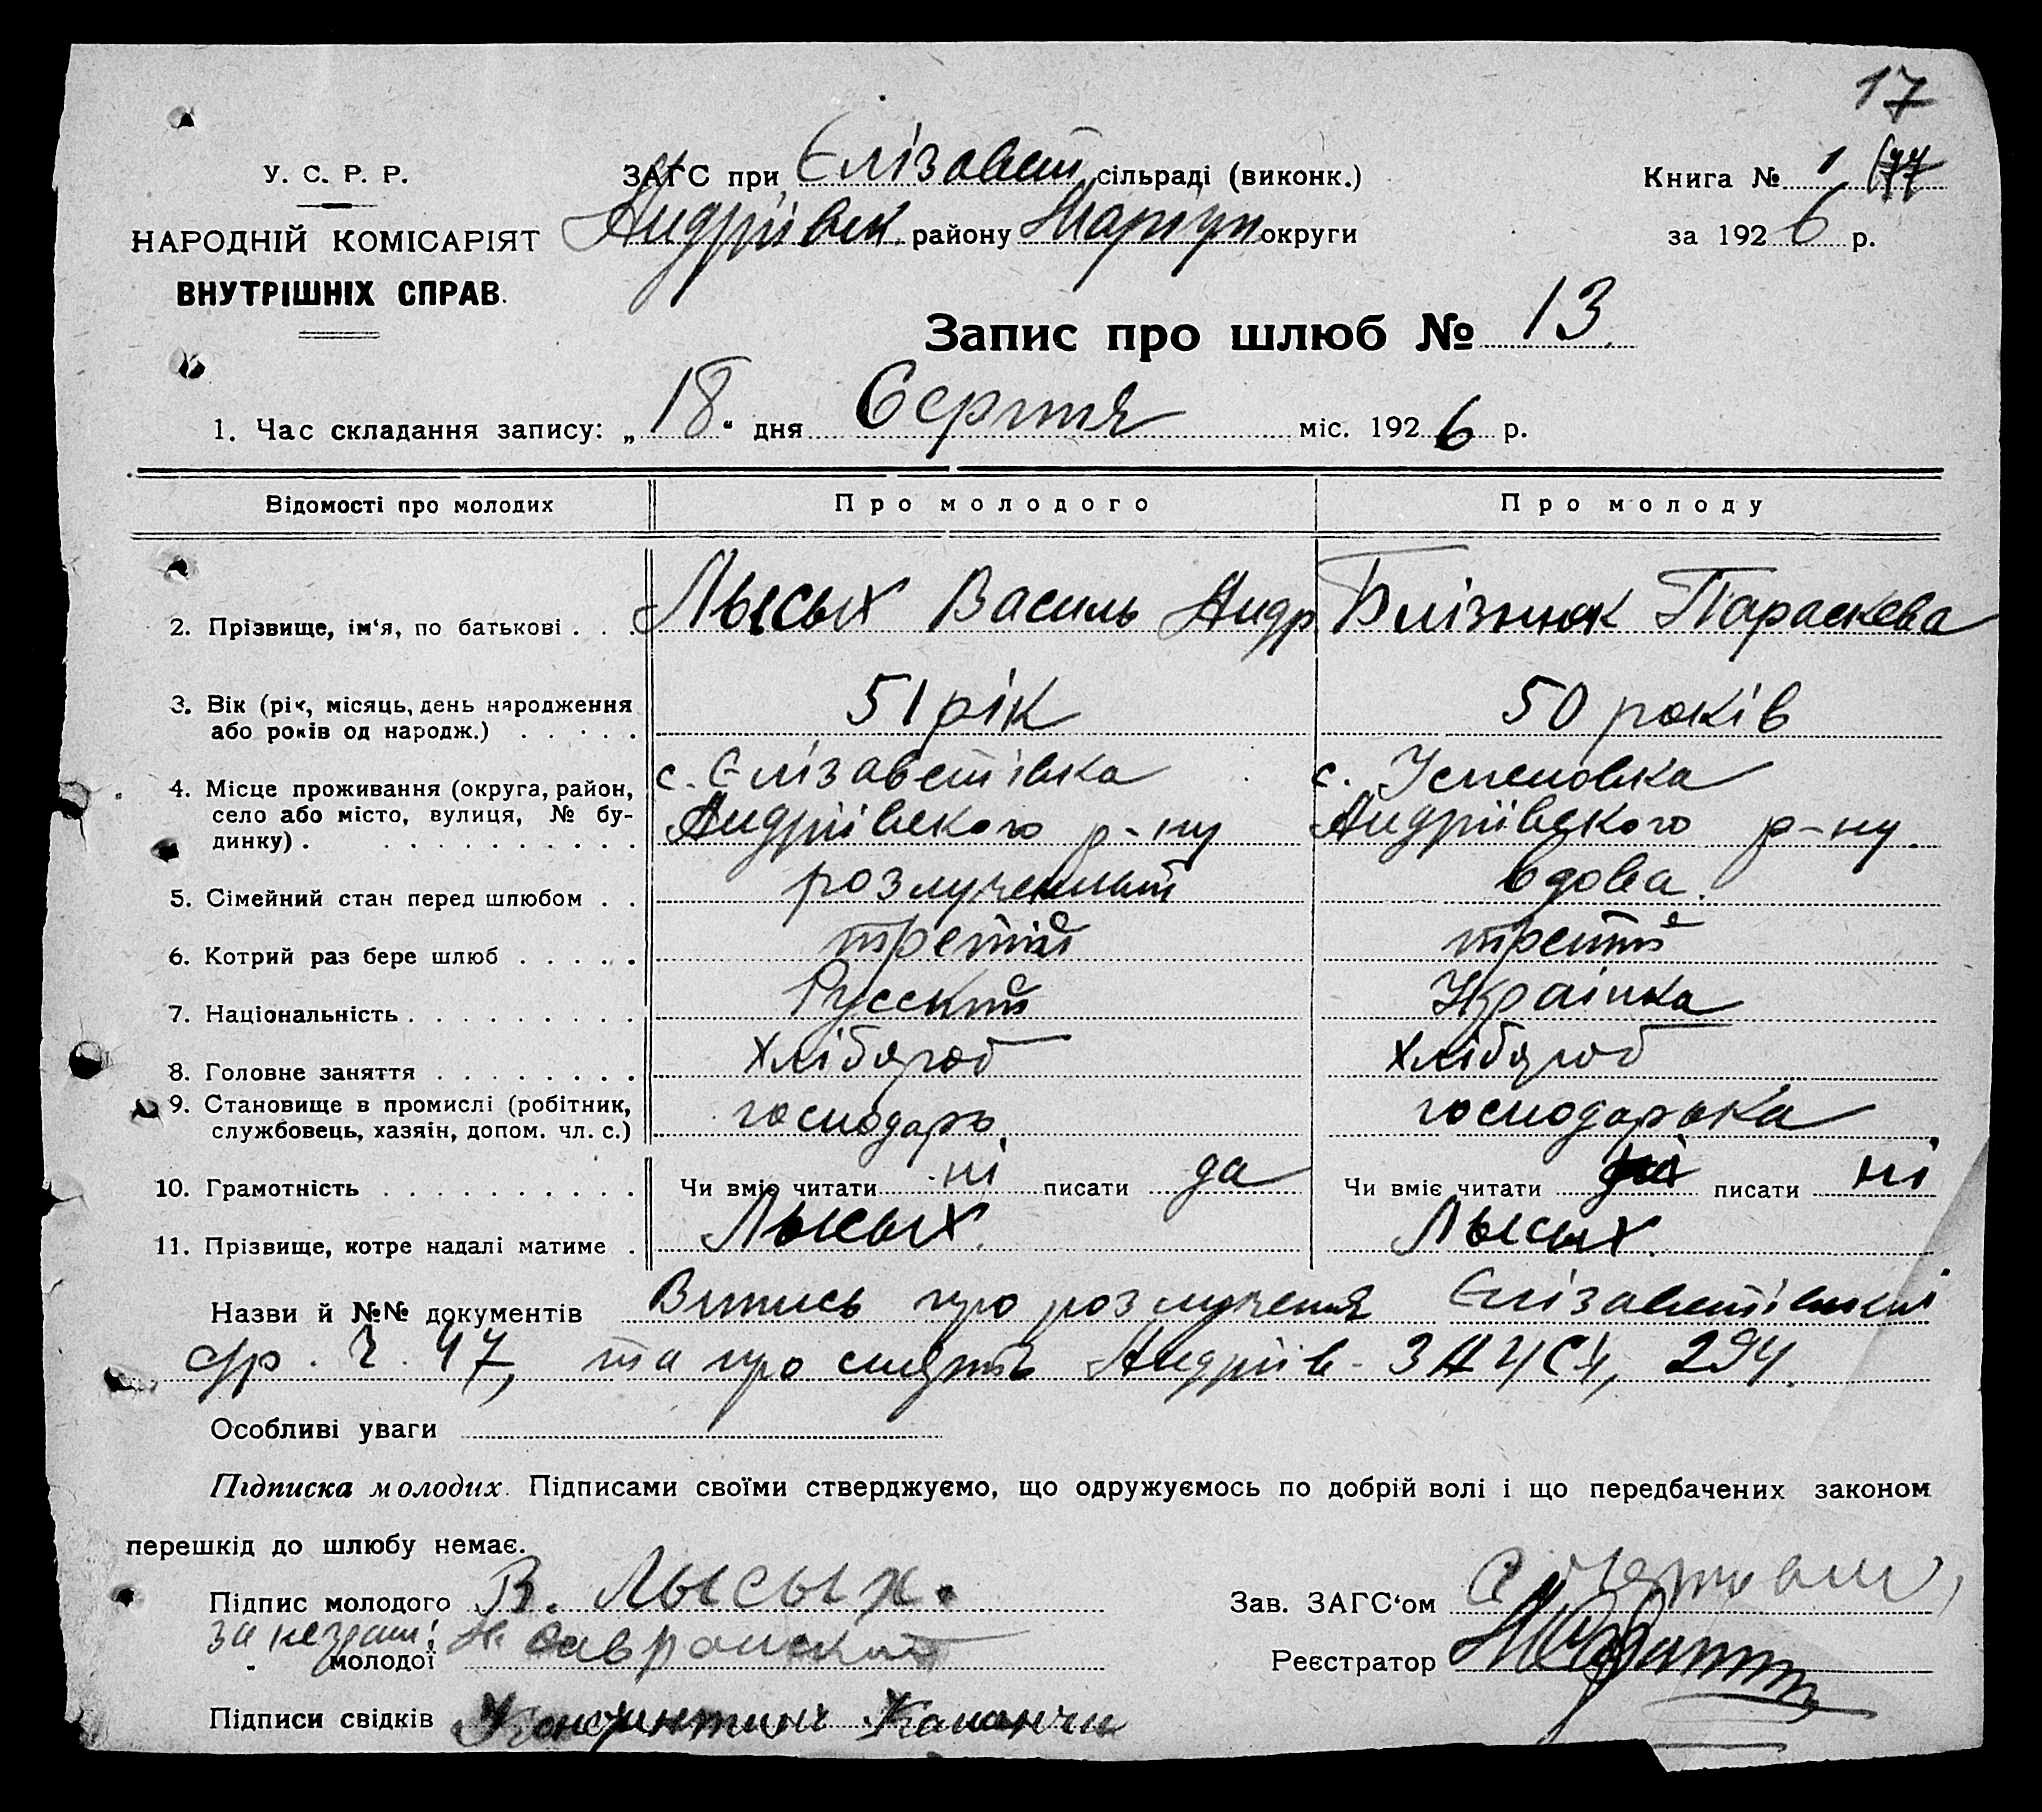 17
У. С. Р. Р.
НАРОДНІЙ КОМІСАРІЯТ
ВНУТРІШНІХ СПРАВ.
ЗАГС при Єлізавет сільраді (виконк.)
Андріївск. району Маріуп округи
Книга № 1
за 1926 р.
Запис про шлюб № 13.
1. Час складання запису: „18" дня Серпня міс. 1926 р.
Відомості про молодих Про молодого Про молоду
2. Прізвище, ім'я, по батькові . . . Лысых Василь Андр. Блізнюк Параскева
3. Вік (рік, місяць, день народження
або років од народж.) . . . . . 51 рік 50 років
4. Місце проживання (округа, район,
село або місто, вулиця, № бу-
динку) . . . . . . . . . . .
с. Єлізаветівка
Андріївского р-ну
с. Успеновка
Андріївского р-ну.
5. Сімейний стан перед шлюбом . . розлучений вдова.
6. Котрий раз бере шлюб . . . . . третій третій
7. Національність . . . . . . . . . Русский Українка
8. Головне заняття . . . . . . . . хлібороб хлібороб
9. Становище в промислі (робітник,
службовець, хазяїн, допом. чл. с.) господарь. господарька
10. Грамотність . . . . . . . . . . Чи вміє читати ні писати да Чи вміє читати писати ні
11. Прізвище, котре надалі матиме . Лысых. Лысых.
Назви й №№ документів Випись про розлучення Єлізаветівської
с/р. Ч. 47, та про смерть Андріїв- ЗАГС'у, 294.
Особливі уваги
Підписка молодих. Підписами своїми стверджуємо, що одружуємось по добрій волі і що передбачених законом
перешкід до шлюбу немає.
Підпис молодого В. Лысых.
Зав. ЗАГС'ом
за неграм.
" молодої
Реєстратор
Підписи свідків